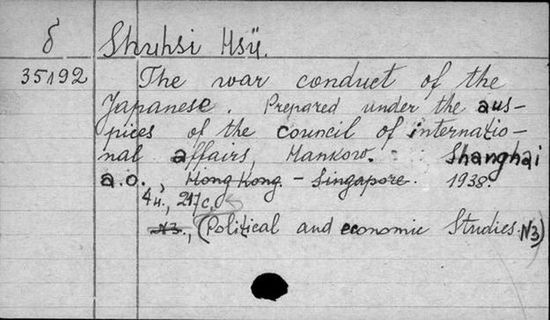 δ Shuhsi Hsü.
35192 The war conduct of the
Japanese. Prepared under the aus-
pices of the council of internatio-
nal affairs, Hankow. Shanghai
a.o., Hong Kong - Singapore. 1938.
(Political and economic Studies N3)